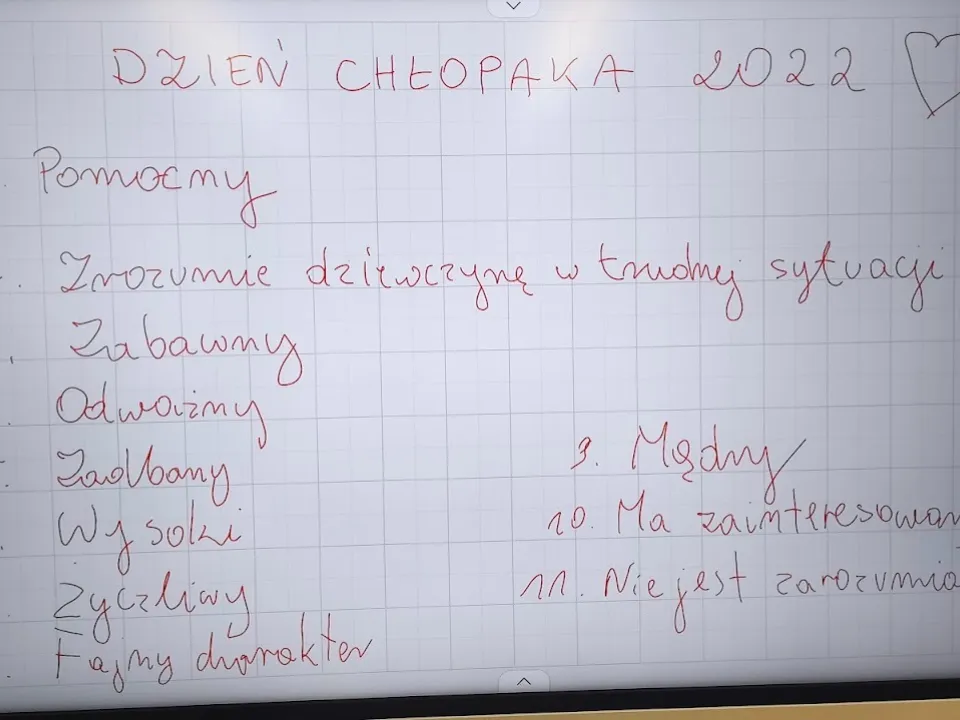 DZIEŃ CHŁOPAKA 2022
Pomocny
Zrozumie dziewczynę w trudnej sytuacji
Zabawny
Odważny
Zadbany
Wysoki
Życzliwy
Fajny charakter
9. Mądry
10. Ma zainteresowan
11. Nie jest zarozumia